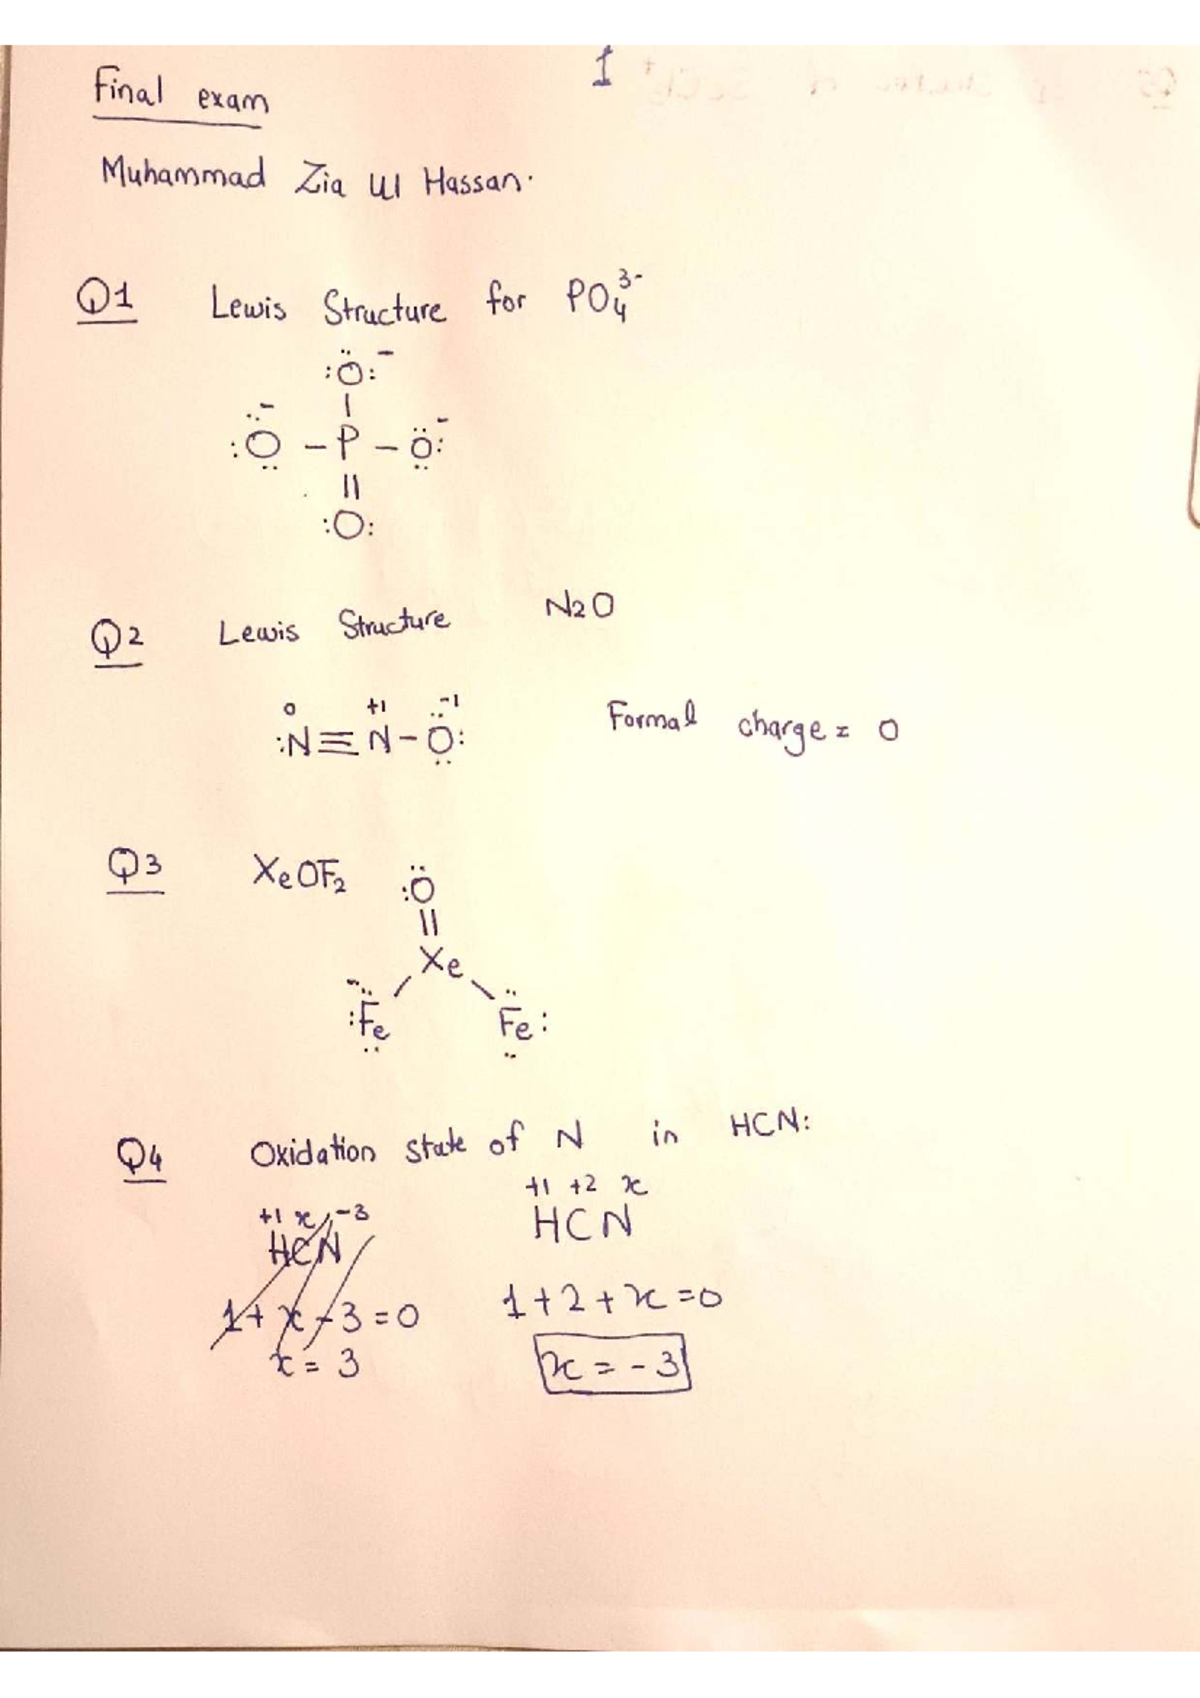 1
Final exam
Muhammad Zia Ul Hassan.
Q1 Lewis Structure for PO₄³⁻
:Ö:⁻
|
:Ö:⁻ – P – Ö:⁻
||
:O:
Q2 Lewis Structure N2O
0 +1 -1
:N≡N–Ö: Formal charge = 0
Q3 XeOF₂ :Ö
||
Xe
:Fe Fe:
Q4 Oxidation state of N in HCN:
+1 x -3 +1 +2 x
HCN HCN
1+x-3=0 1+2+x=0
x=3 x=-3